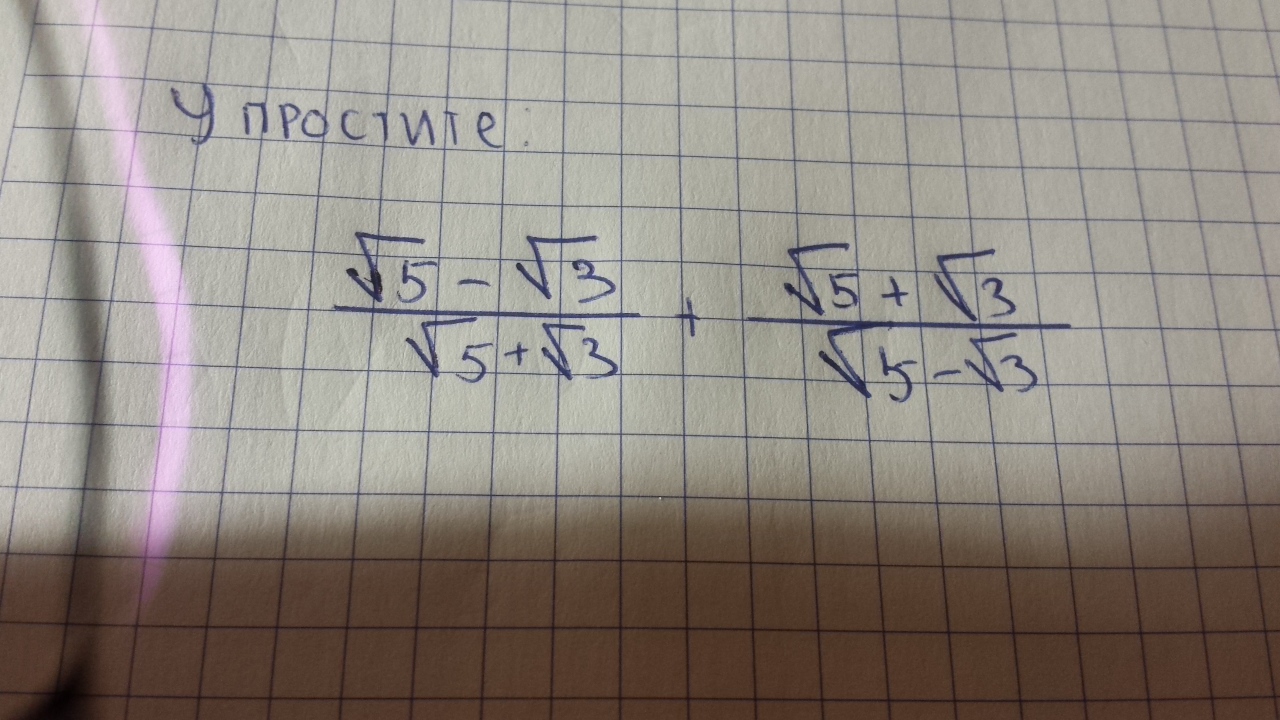 Упростите:
\frac{\sqrt{5} - \sqrt{3}}{\sqrt{5} + \sqrt{3}} + \frac{\sqrt{5} + \sqrt{3}}{\sqrt{5} - \sqrt{3}}